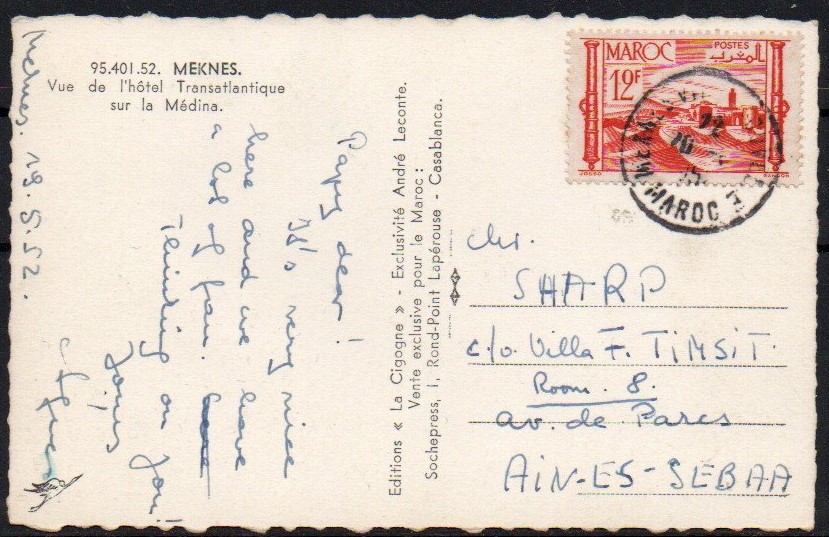 95.401.52. MEKNES.
Vue de l'hôtel Transatlantique
sur la Médina.
Meknes. 19.5.52.
Papy dear!
It's very nice
here and we have
a lot of fun.
Thinking on you!
Editions « La Cigogne » - Exclusivité André Leconte.
Vente exclusive pour le Maroc :
Sochepress, 1, Rond-Point Lapérouse - Casablanca.
MAROC
POSTES
المغرب
12F
JOSSO
MAROC
SHARP
c/o. Villa F. TIMSIT.
Room. 8.
av. de Paris
AIN-ES-SEBAA